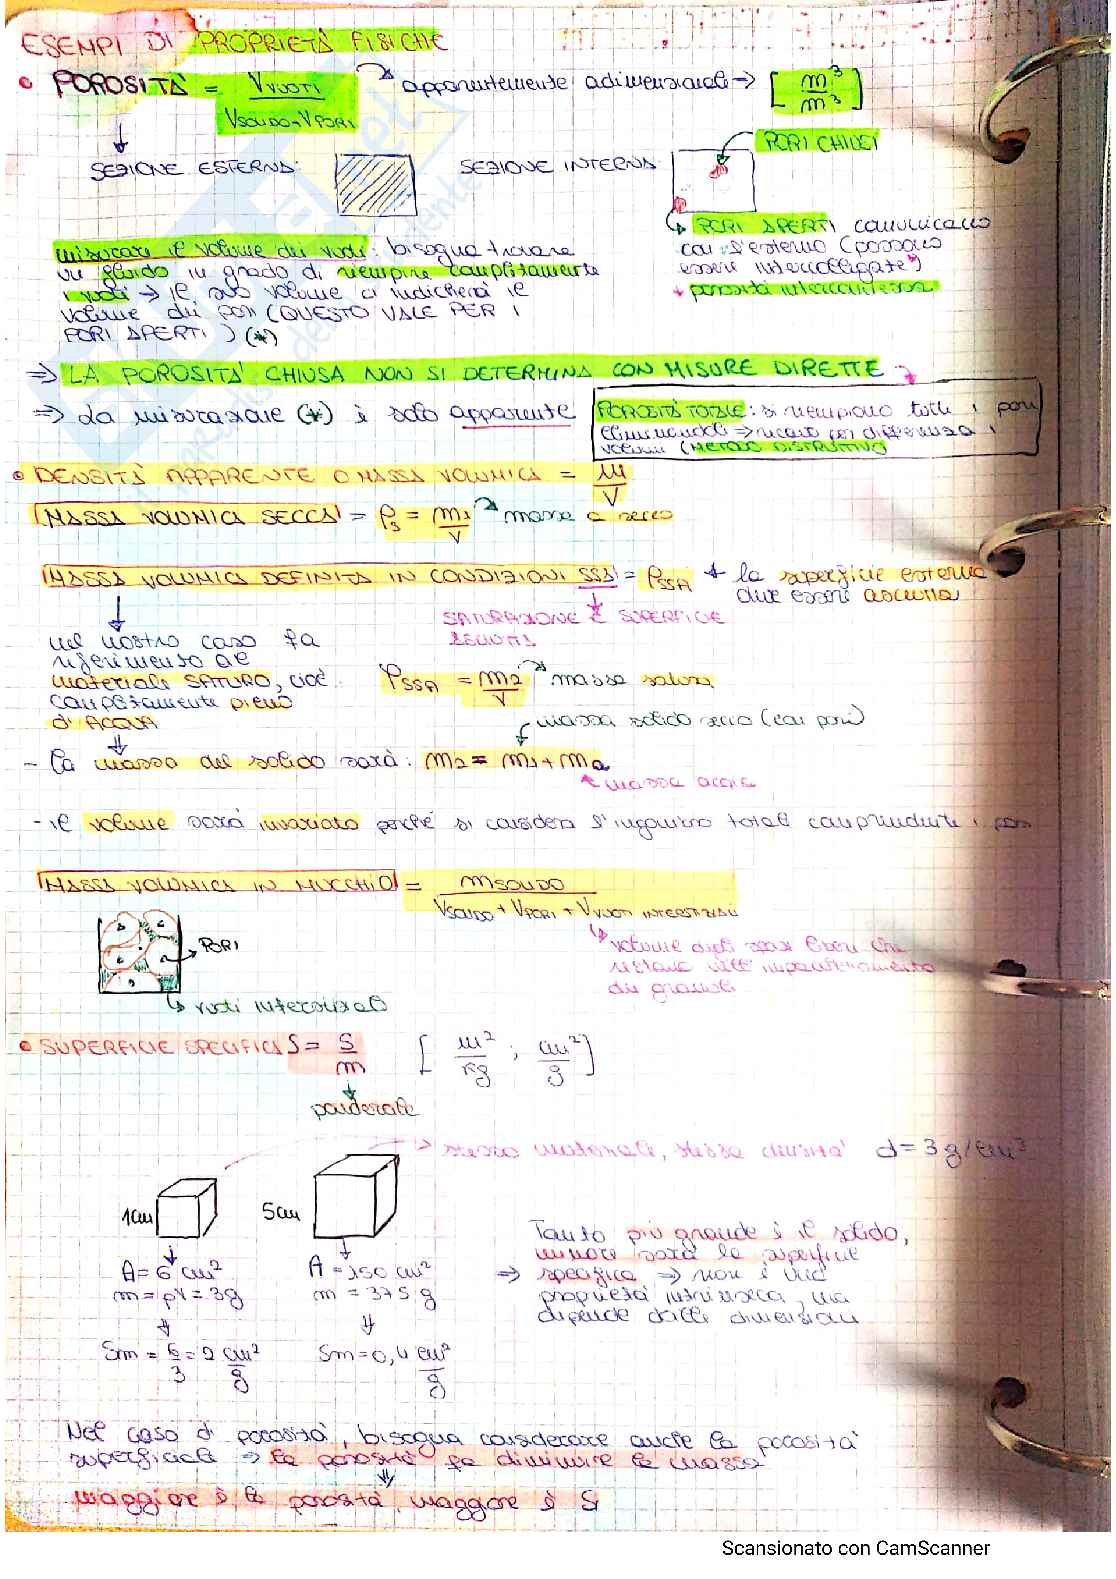 ESEMPI DI PROPRIETÀ FISICHE
• POROSITÀ = VVUOTI / VSOLIDO+VPORI → apparentemente adimensionale → [m³/m³]
SEZIONE ESTERNA:
SEZIONE INTERNA:
PORI CHIUSI
PORI APERTI comunicano
con l'esterno (possono
essere intercollegate)
↓ porosità interconnessa
misurare il volume dei vuoti: bisogna trovare
un fluido in grado di riempire completamente
i vuoti → il suo volume ci indicherà il
volume dei pori (QUESTO VALE PER I
PORI APERTI) (*)
⇒ LA POROSITÀ CHIUSA NON SI DETERMINA CON MISURE DIRETTE
⇒ La misurazione (*) è solo apparente
POROSITÀ TOTALE: si riempiono tutti i pori
eliminandoli ⇒ ricavo per differenza i
volumi (METODO DISTRUTTIVO
• DENSITÀ APPARENTE O MASSA VOLUMICA = M/V
MASSA VOLUMICA SECCA = ρs = m1/V → massa a secco
MASSA VOLUMICA DEFINITA IN CONDIZIONI SSA = ρSSA → la superficie esterna
deve essere asciutta
SATURAZIONE E SUPERFICIE
nel nostro caso fa
riferimento al
materiale SATURO, cioè
completamente pieno
di ACQUA
ρSSA = m2/V → massa satura
massa solido secco (con pori)
- la massa del solido sarà: m2 = m1 + ma
massa acqua
- il volume sarà invariato perché si considera l'ingombro totale comprendente i pori
MASSA VOLUMICA IN MUCCHIO = mSOLIDO / VSOLIDO + VPORI + VVUOTI INTERSTIZIALI
PORI
vuoti interstiziali
volume degli spazi liberi che
restano nell'impacchettamento
dei granuli
• SUPERFICIE SPECIFICA S = S/m [m²/kg ; cm²/g]
ponderale
stesso materiale, stessa densità d = 3 g/cm³
1cm
5cm
A = 6 cm²
m = ρV = 3g
Sm = 6/3 = 2 cm²/g
A = 150 cm²
m = 375 g
Sm = 0,4 cm²/g
Tanto più grande è il solido,
minore sarà la superficie
⇒ specifica ⇒ non è una
proprietà intrinseca, ma
dipende dalle dimensioni
Nel caso di porosità, bisogna considerare anche la porosità
superficiale ⇒ la porosità fa diminuire la massa
maggiore è la porosità, maggiore è S
Scansionato con CamScanner